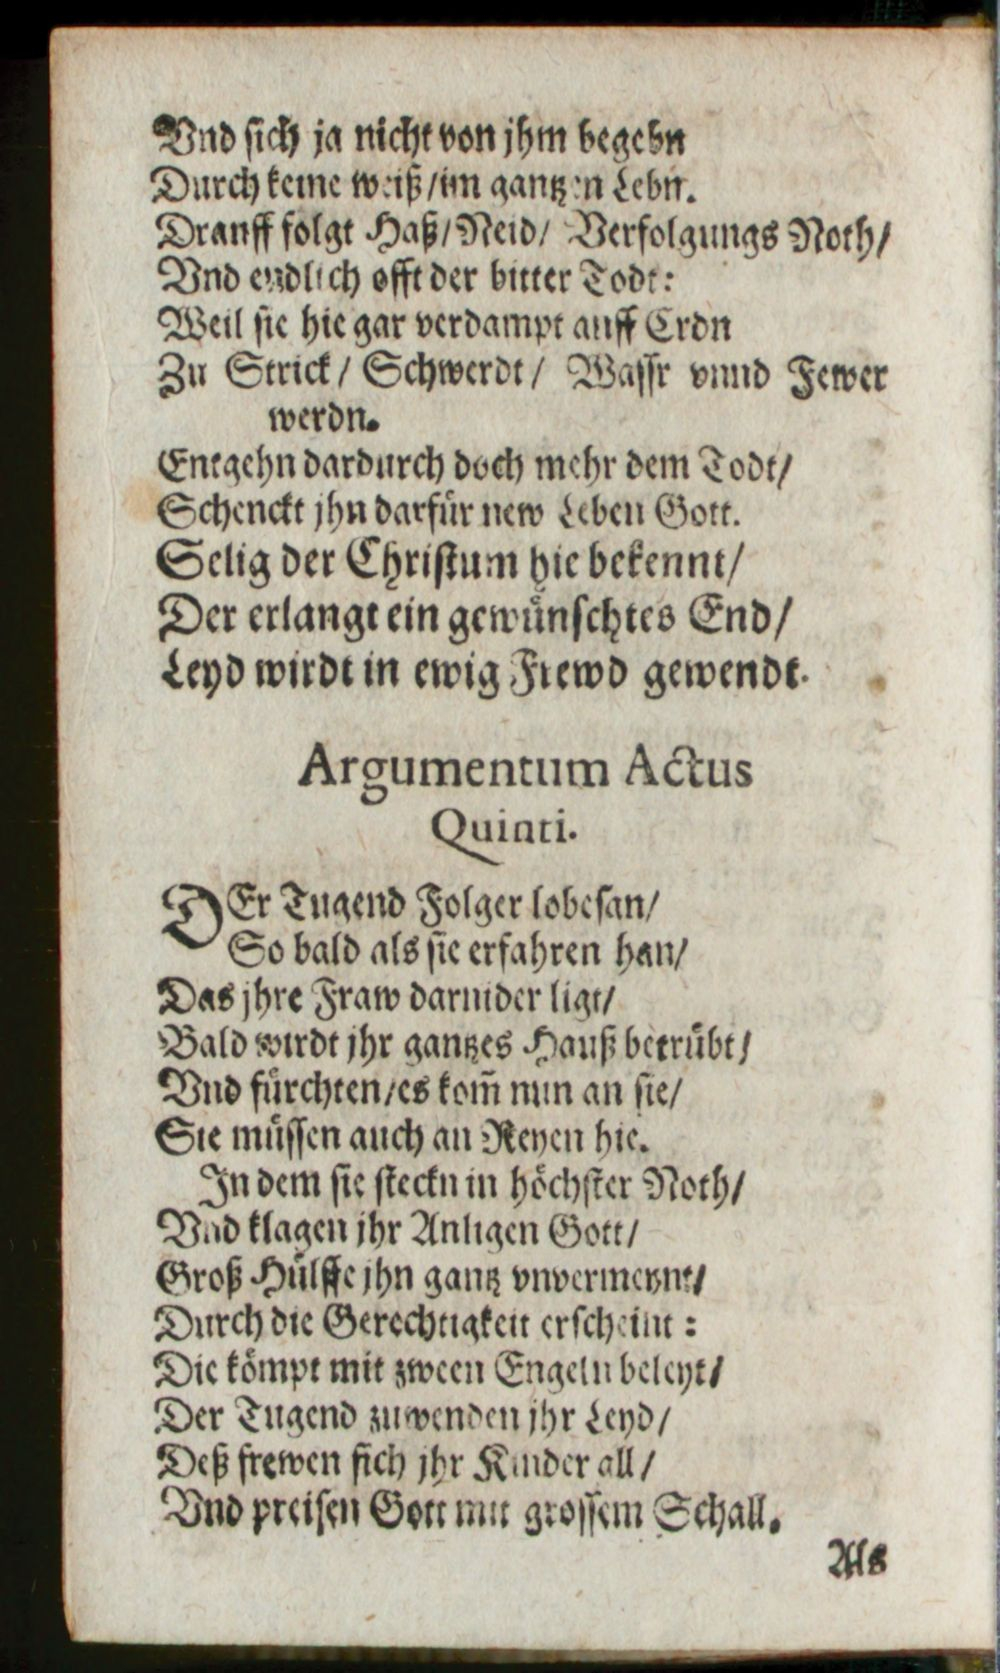 Vnd sich ja nicht von jhm begebn
Durch keine weiß/im gantzen Lebn.
Drauff folgt Haß/Neid/ Verfolgungs Noth/
Vnd endlich offt der bitter Todt:
Weil sie hie gar verdampt auff Erdn
Zu Strick/ Schwerdt/ Wassr vnnd Fewer
werdn.
Entgehn dardurch doch mehr dem Todt/
Schenckt jhn darfür new Leben Gott.
Selig der Christum hie bekennt/
Der erlangt ein gewünschtes End/
Leyd wirdt in ewig Frewd gewendt.
Argumentum Actus
Quinti.
DEr Tugend Folger lobesan/
So bald als sie erfahren han/
Das jhre Fraw darnider ligt/
Bald wirdt jhr gantzes Hauß betrübt/
Vnd fürchten/es kom̃ nun an sie/
Sie müssen auch an Reyen hie.
In dem sie steckn in höchster Noth/
Vnd klagen jhr Anligen Gott/
Groß Hülffe jhn gantz vnvermeynt/
Durch die Gerechtigkeit erscheint:
Die kömpt mit zween Engeln beleyt/
Der Tugend zuwenden jhr Leyd/
Deß frewen sich jhr Kinder all/
Vnd preisen Gott mit grossem Schall.
Als